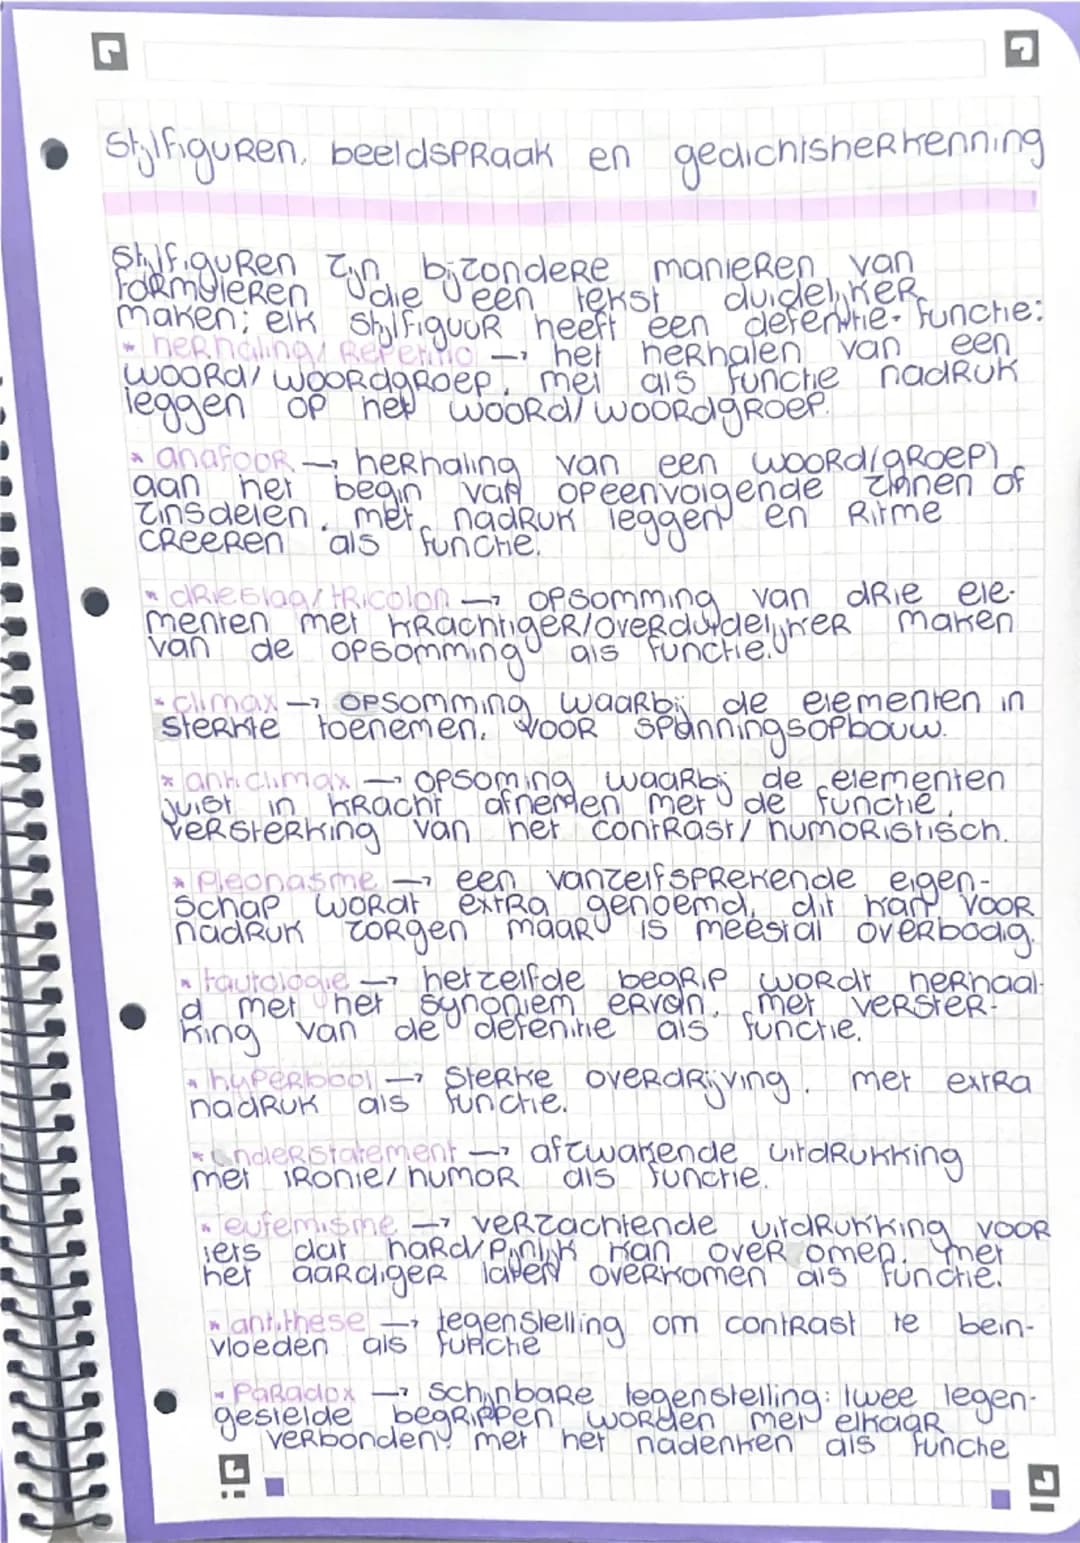 Stijlfiguren, beeldspraak en gedichtsherkenning
Stijlfiguren zijn bijzondere manieren van
formuleren die een tekst duidelijker
maken; elk stijlfiguur heeft een defenitie + functie:
* herhaling/ Repetitio → het herhalen van een
woord/ woordgroep, met als functie nadruk
leggen op het woord/ woordgroep.
* anafoor → herhaling van een woord(groep)
aan het begin van opeenvolgende zinnen of
zinsdelen. met nadruk leggen en Ritme
creeëren als functie.
* drieslag/tricolon → opsomming van drie ele-
menten met krachtiger/overduidelijker maken
van de opsomming als functie.
* climax → opsomming waarbij de elementen in
sterkte toenemen. voor spanningsopbouw.
* anticlimax → opsoming waarbij de elementen
juist in kracht afnemen met de functie
versterking van het contrast/ humoristisch.
* Pleonasme → een vanzelfsprekende eigen-
schap wordt extra genoemd, dit kan voor
nadruk zorgen maar is meestal overbodig.
* tautologie → hetzelfde begrip wordt herhaal-
d met het synoniem ervan. met verster-
king van de defenitie als functie.
* hyperbool → sterke overdrijving. met extra
nadruk als functie.
* understatement → afzwakende uitdrukking
met ironie/humor als functie.
* eufemisme → verzachtende uitdrukking voor
iets dat hard/pijnlijk kan over omen. met
het aardiger laten overkomen als functie.
* antithese → tegenstelling om contrast te bein-
vloeden als functie
* Paradox → Schijnbare tegenstelling: twee tegen-
gestelde begrippen worden met elkaar
verbonden. met het nadenken als functie